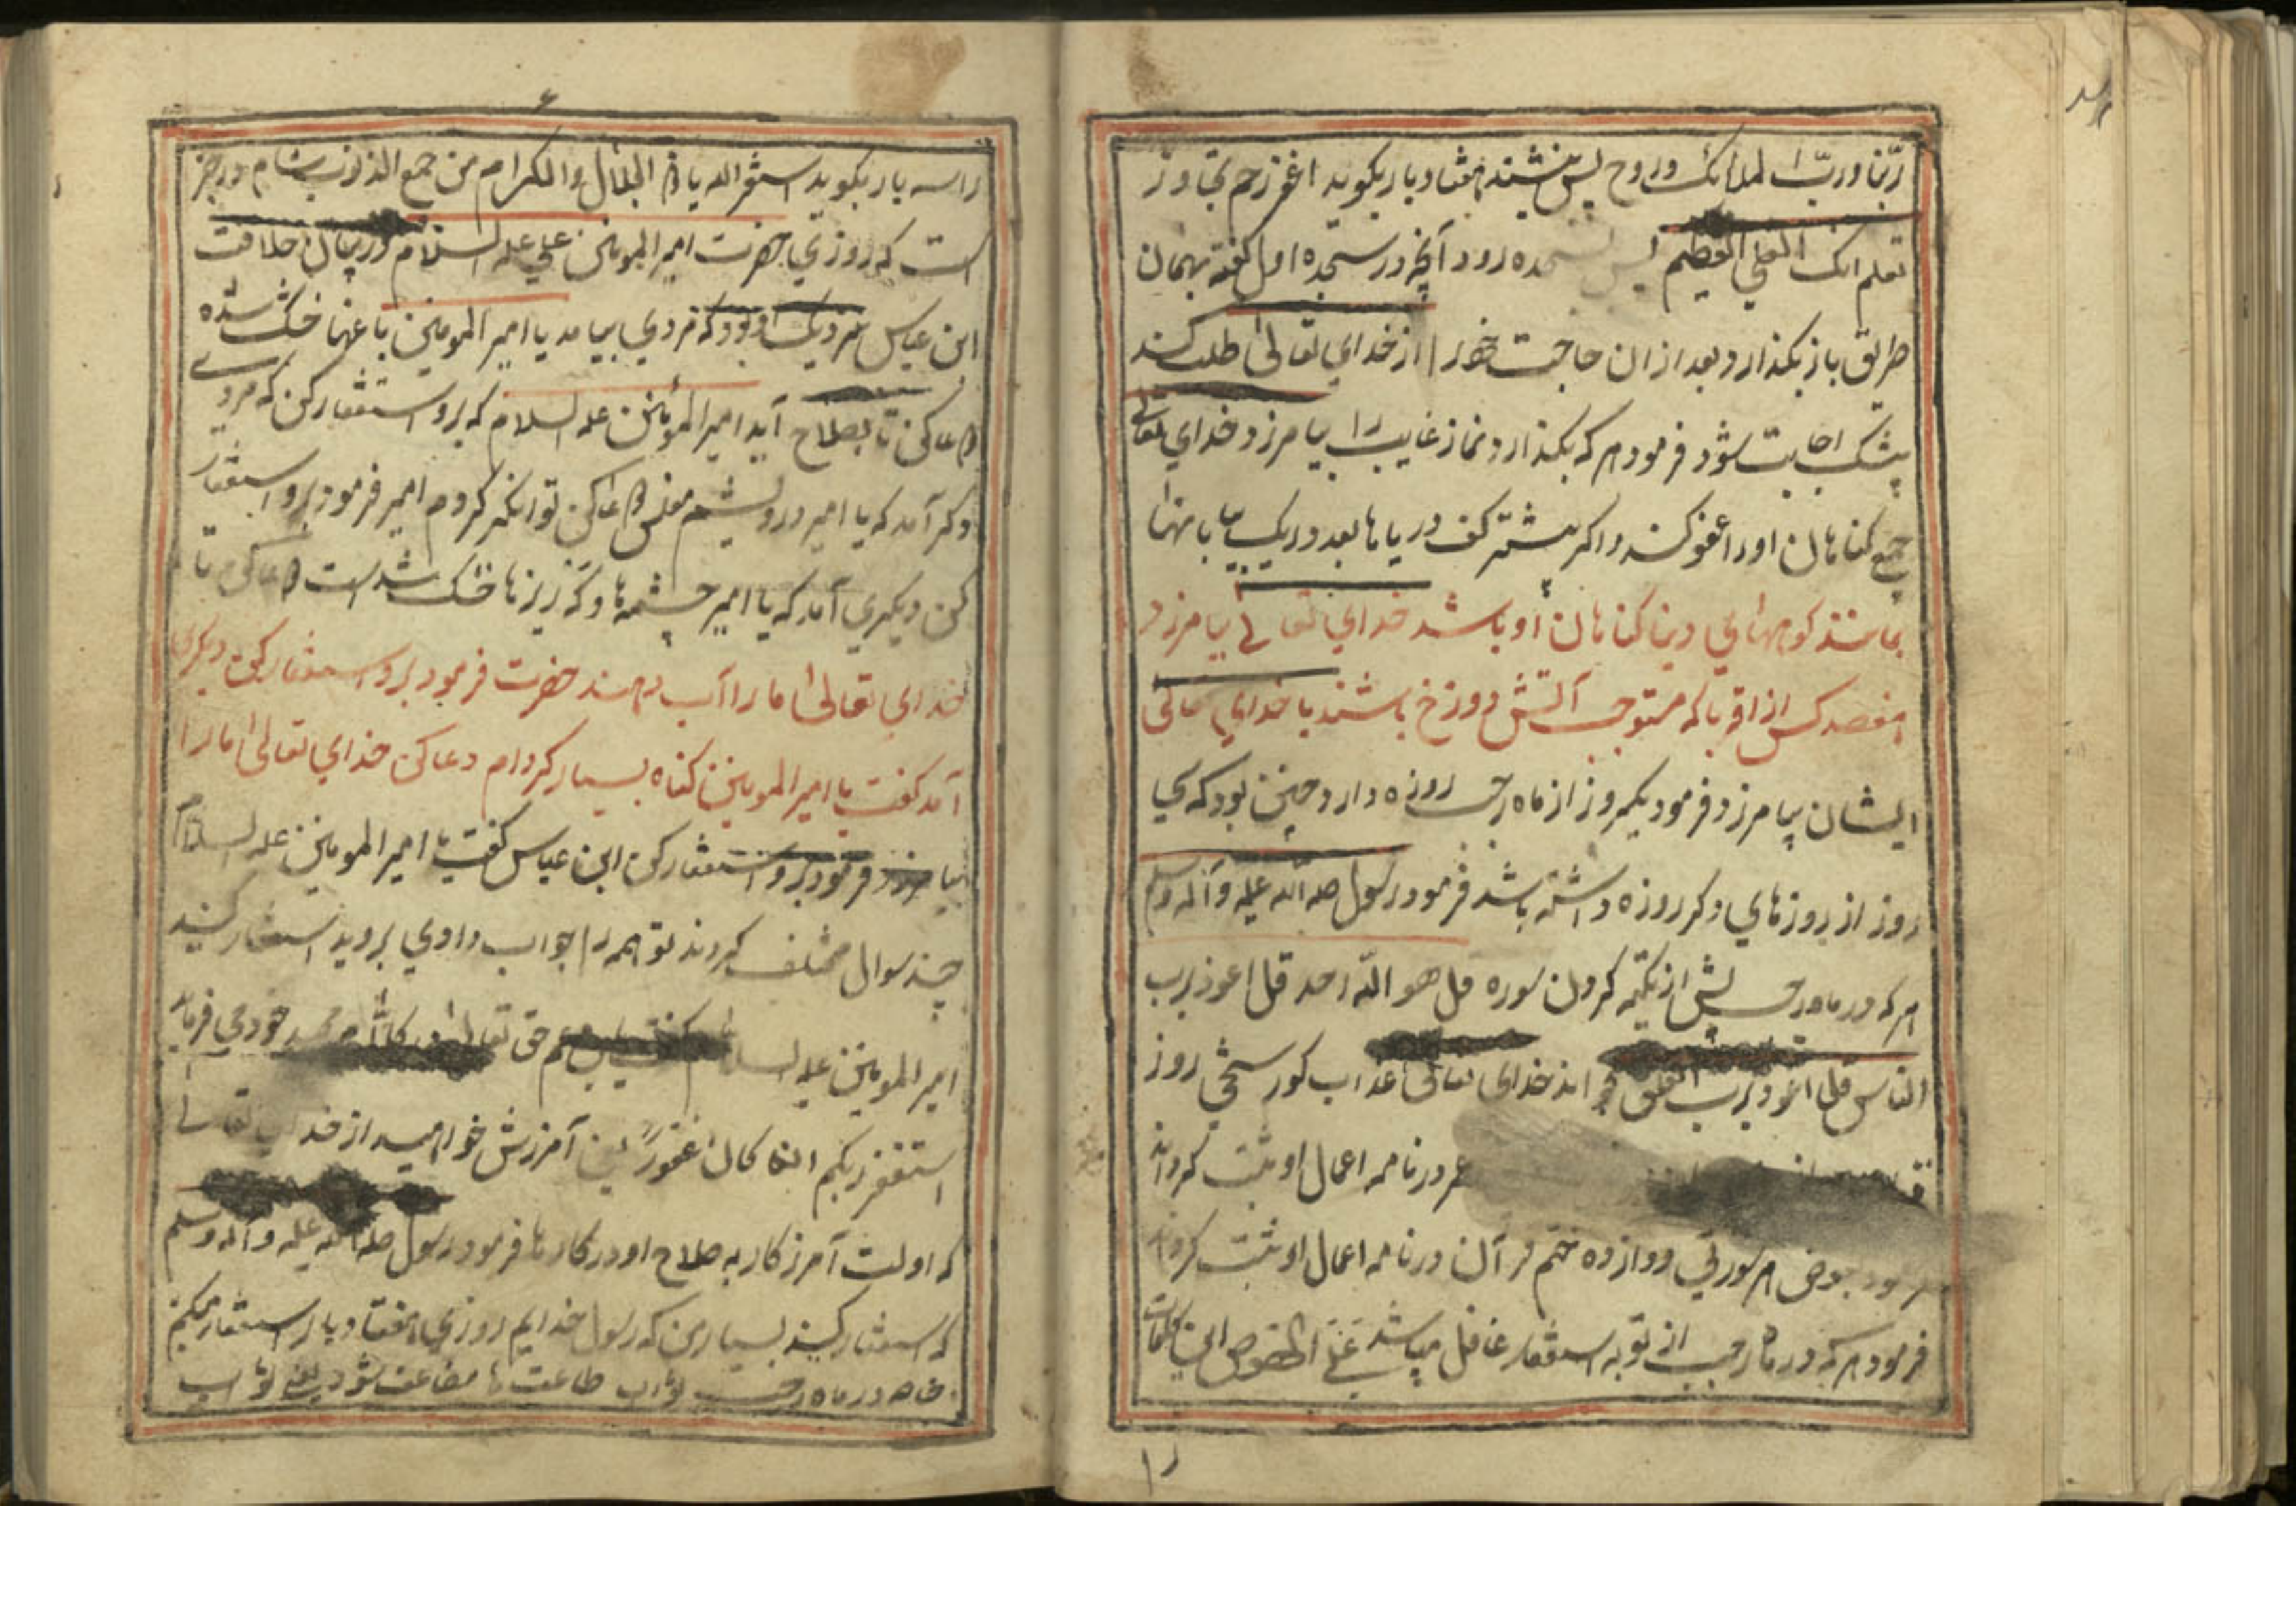 ربنا و رب الملائک و روح پس بنشیند هفتاد بار بکوید اغفر رحم تجاوز
تعلم انک العلی العظیم پس بسجده رود آنچه در سجده اول کفته بهمان
طریق باز بکذارد و بعد از ان حاجت خود را از خدای تعالی طلب کند
بیشک اجابت شود فرمود هر که بکذارد نماز غایب را بیامرزد خدای تعالی
جمیع کناهان او را عفو کند و اکر بیشتر کف دریاها بعدد ریک بیابانها
بمانند کوههای دنیا کناهان او باشد خدای تعالی بیامرزد
هفصد کس از اقربا که مستوجب آتش دوزخ باشند با خدای تعالی
ایشان بیامرزد و فرمود یکروز از ماه رجب روزه دارد چنین بود که سی
روز از روزهای دکر روزه داشته باشد فرمود رسول صلی الله علیه و آله وسلم
هر که در ماه رجب پیش از تکیه کردن سوره قل هو الله احد قل اعوذ برب
الناس قل اعوذ برب الفلق خواند خدای تعالی عذاب کور سختی روز
در نامه اعمال او ثبت کرداند
بعوض هر سورتی دوازده ختم قرآن در نامه اعمال او ثبت کرداند
فرمود هر که در ماه رجب از توبه استغفار غافل مباشد علی الخصوص این کلمات
۶
را سه بار بکوید استغفر الله یا ذا الجلال والاکرام من جمیع الذنوب هشام در خبر
است که روزی حضرت امیر المومنین علی علیه السلام در زمان خلافت
ابن عباس نزدیک او بود که مردی بیامد یا امیر المومنین باغهنا خشک شده
دعا کن تا بصلاح آید امیر المومنین علیه السلام که برو استغفار کن که مردی
دکر آمد که یا امیر درویشم مفلس دعا کن توانکر کردم امیر فرمود برو استغفار
کن دیکری آمد که یا امیر چشمه ها و که ریزها خشک شده است دعا کن تا
خدای تعالی ما را آب دهند حضرت فرمود برو استغفار کن دیکری
آمد کفت یا امیر المومنین کناه بسیار کردام دعا کن خدای تعالی ما را
بیامرزد فرمود برو استغفار کن ابن عباس کفت یا امیر المومنین علیه السلام
چند سوال مختلف کردند تو همه را جواب دادی بروید استغفار کنید
امیر المومنین علیه السلام کفت یا بن عم حق تعالی در کلام مجید خود می فرماید
استغفر ربکم انه کان غفورا یعنی آمرزش خواهید از خدای تعالی
که اولت آمرزکار به صلاح اودر کارها فرمود رسول صلی الله علیه و آله وسلم
که استغفار کنید بسیار من که رسول خدایم روزی هفتاد بار استغفار میکنم
خاصه در ماه رجب ثواب طاعت ها مضاعف شود یعنی ثواب